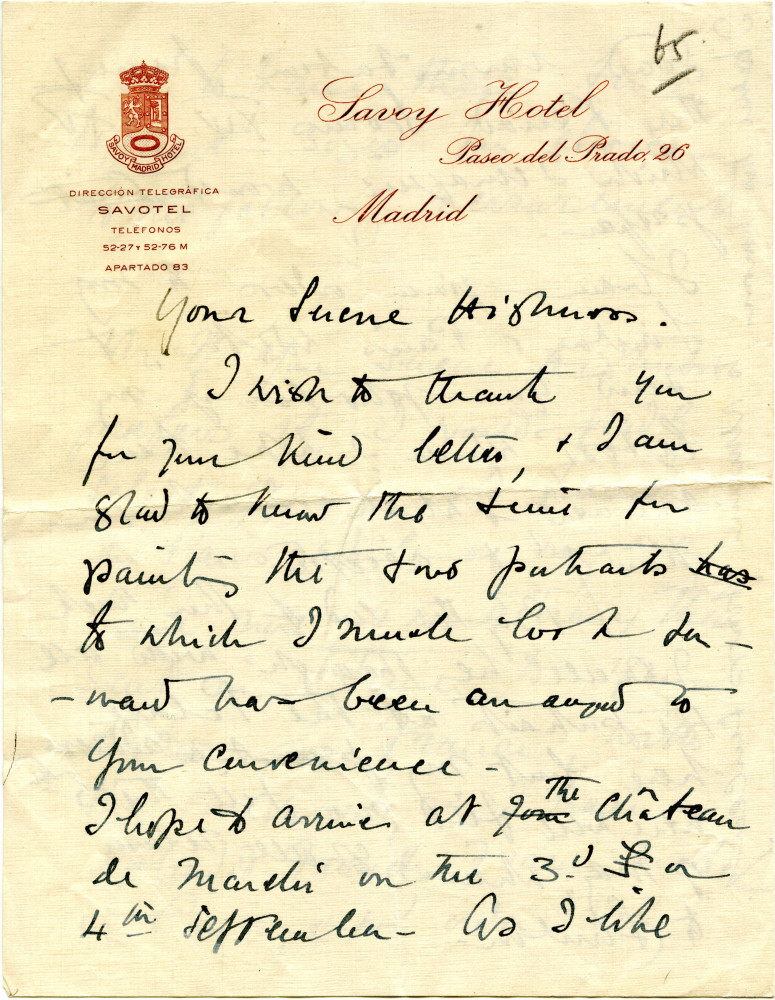 65
Savoy Hotel
Paseo del Prado, 26
Madrid
SAVOY MADRID HOTEL
DIRECCIÓN TELEGRÁFICA
SAVOTEL
TELÉFONOS
52-27 Y 52-76 M
APARTADO 83
Your Serene Highness.
I wish to thank you
for your kind letter, & I am
glad to know the time for
painting the two portraits has
to which I much look for-
-ward has been arranged to
your convenience -
I hope to arrive at the Château
de Marchais on the 3rd or
4th September - As I like